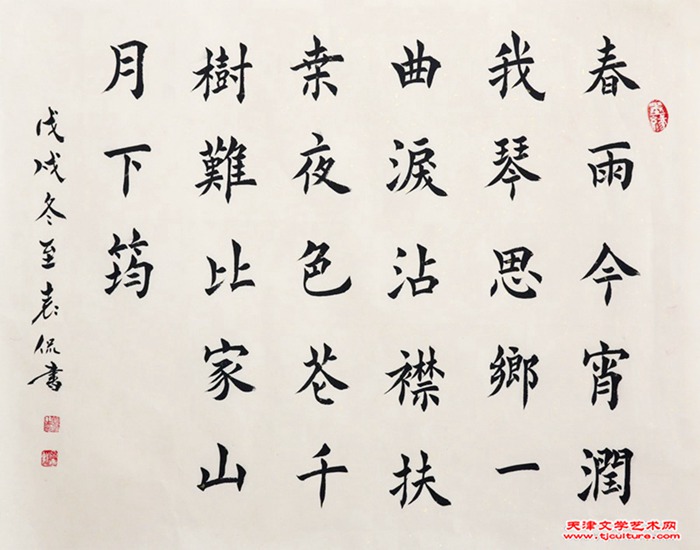 春雨今宵潤
我琴思鄉一
曲淚沾襟扶
桒夜色苍千
樹難比家山
月下筠
戊戌冬至袁侃書
天津文学艺术网
www.tjculture.com